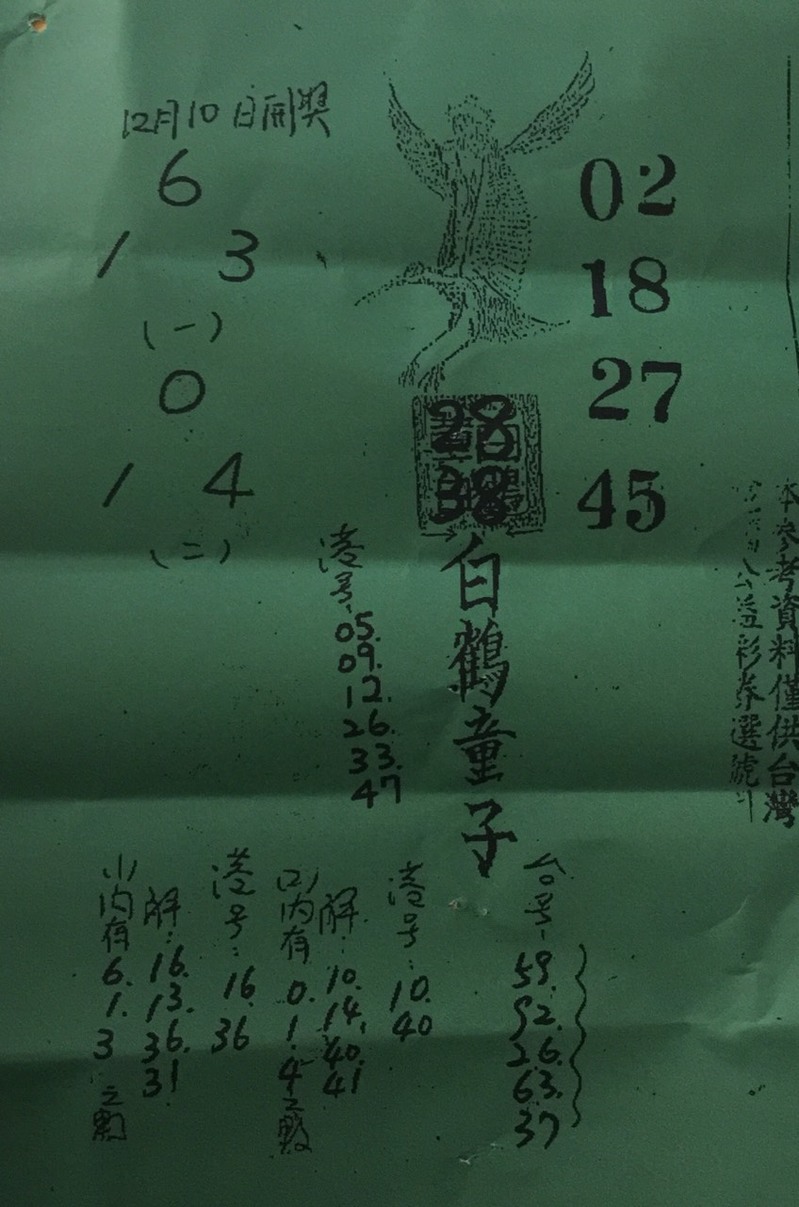 12月10日開獎
6
1 3
(一)
0
1 4
(二)
02
18
27
45
28
38
白鶴童子
港号:
05.
09.
12.
26.
33.
47
本參考資料僅供台灣
公益彩券選號
台号:
59.
92.
26.
63.
37
港号:
10.
40
(2)内有
0.
1.
4之數
解:
10.
14.
40.
41
港号:
16.
36
(1)内有
6.
1.
3
之數
解:
16.
13.
36.
31